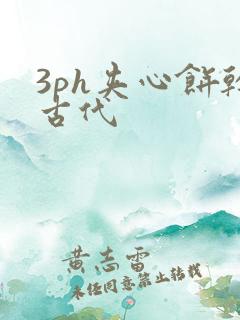 3ph夹心餅乾
古代
黄志雷
未任同意禁止转载